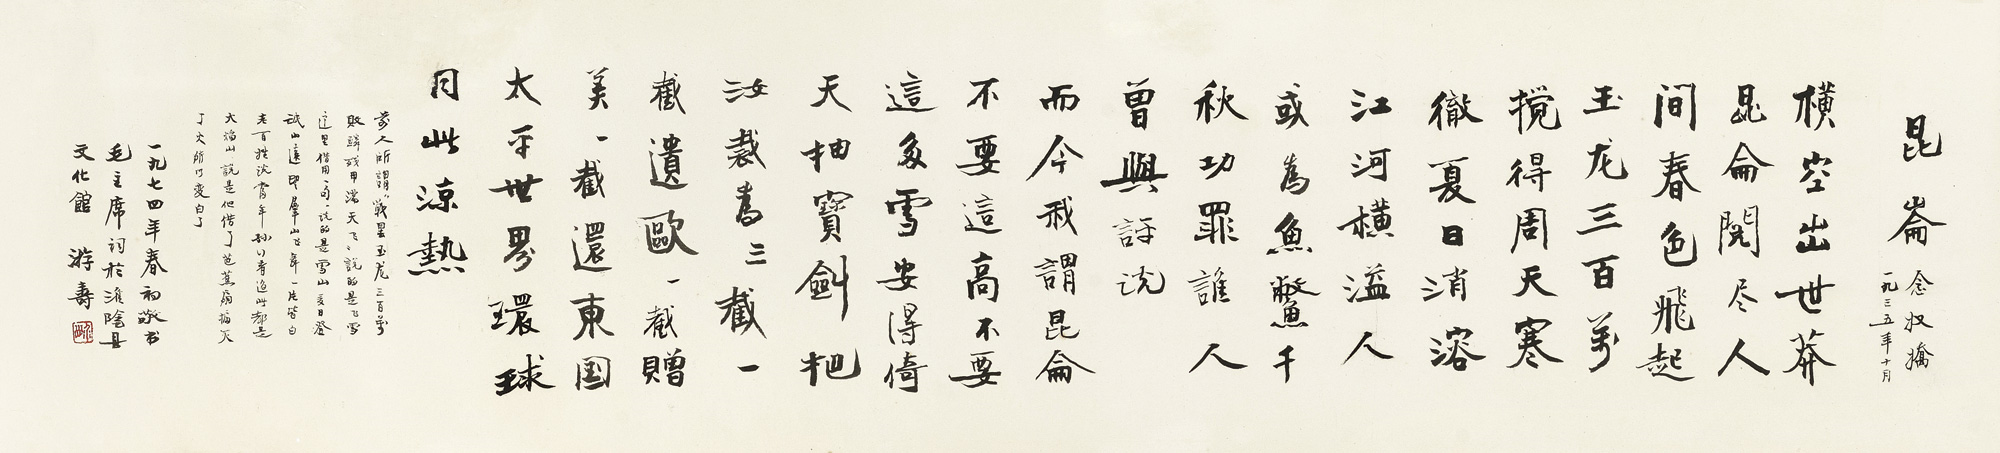 昆崙
念奴嬌
一九三五年十月
橫空出世莽
昆侖閱尽人
间春色飛起
玉龙三百萬
搅得周天寒
徹夏日消溶
江河橫溢人
或為魚鱉千
秋功罪誰人
曾與評说
而今我謂昆侖
不要這高不要
這多雪安得倚
天抽寶劍把
汝裁為三截一
截遺歐一截贈
美一截還東国
太平世界環球
同此涼熱
前人所謂"戰罢玉龙三百萬
敗鱗残甲滿天飞"說的是飞雪
这里借用一句说的是雪山夏日登
岷山遠即羣山飞舞一片皆白
老百姓说當年孙行者過此都是
火焰山說是他借了芭蕉扇搧灭
了火所以变白了
一九七四年春初敬书
毛主席词於淮陰县
文化館 游壽